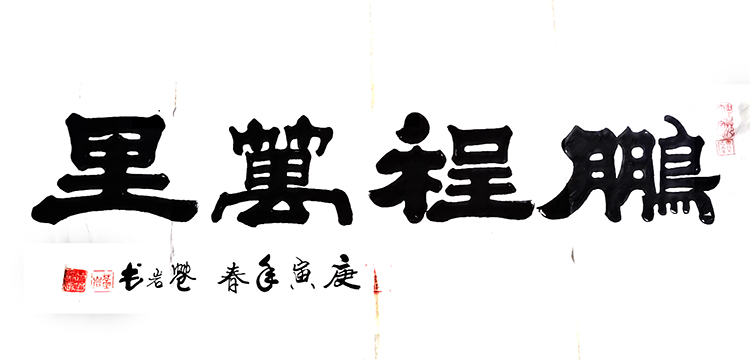 鵬程萬里
庚寅年春 岩书